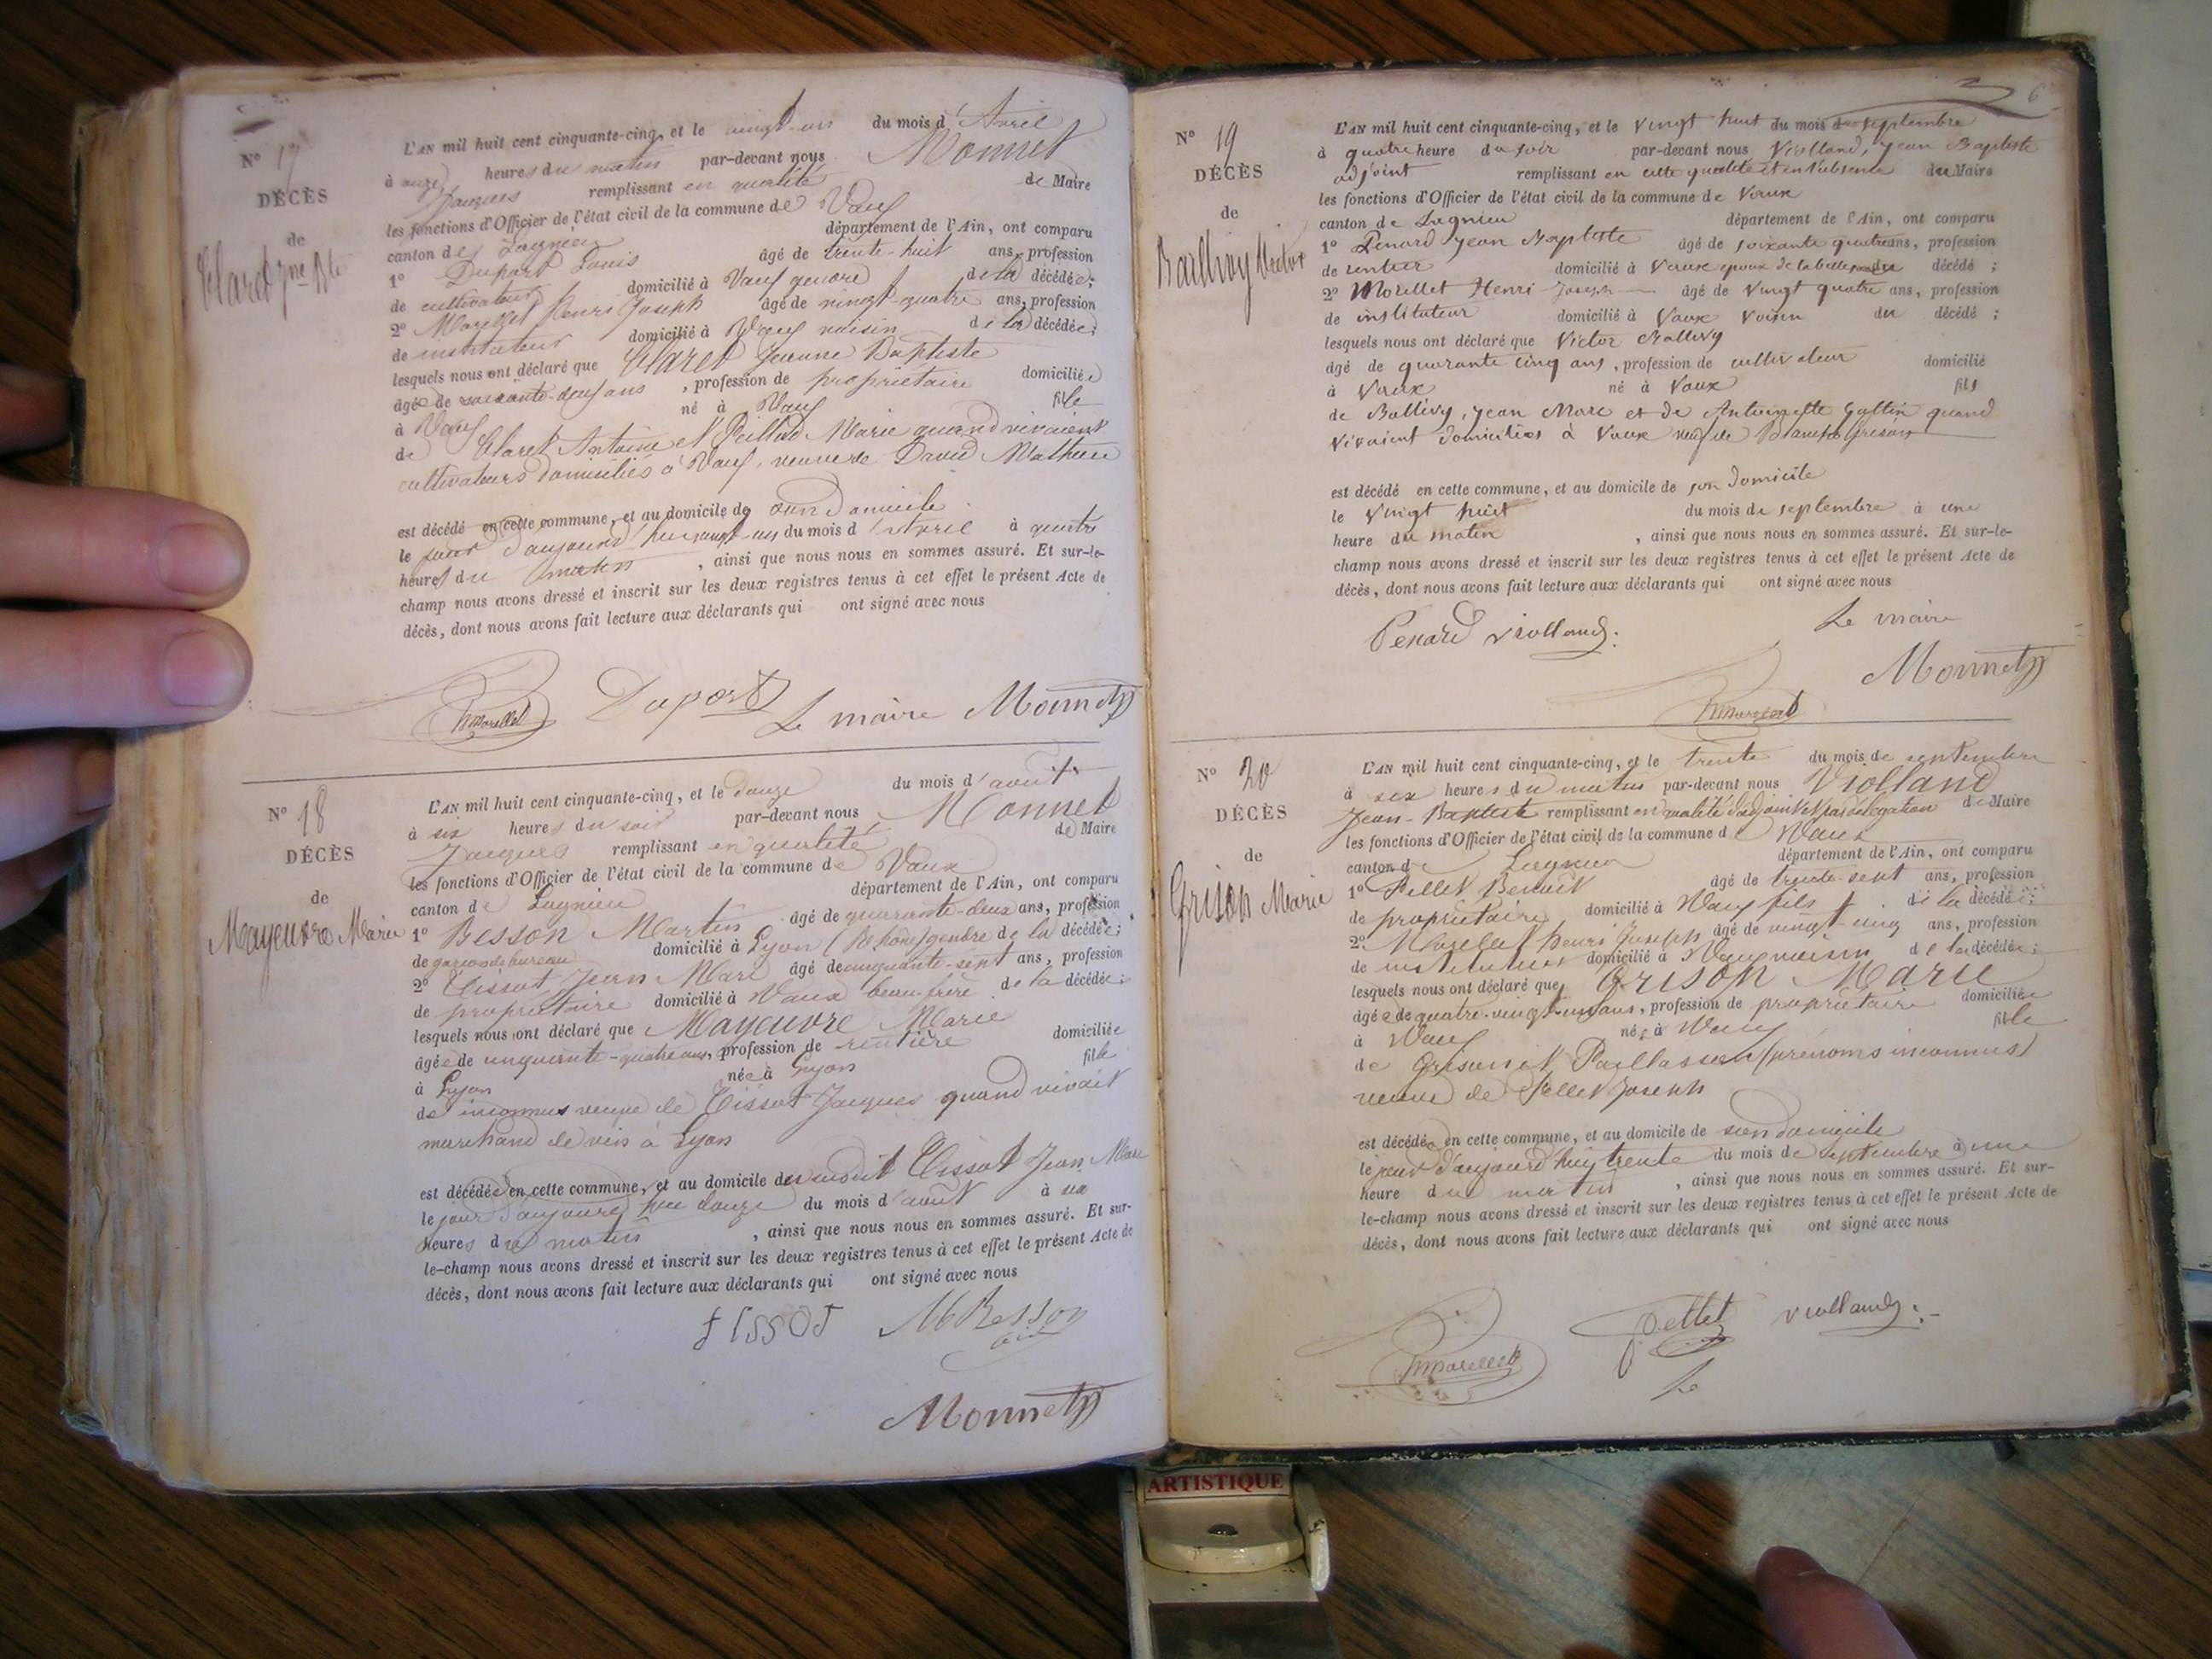 N° 17
DÉCÈS
de
Claret Jne Bte
L'AN mil huit cent cinquante-cinq, et le vingt-un du mois d'Avril
à onze heures du matin par-devant nous Monnet
Jacques remplissant en qualité de Maire
les fonctions d'Officier de l'état civil de la commune de Vaux
canton de Lagnieu département de l'Ain, ont comparu
1° Duport Louis âgé de trente-huit ans, profession
de cultivateur domicilié à Vaux gendre de la décédée;
2° Morellet henri Joseph âgé de vingt-quatre ans, profession
de instituteur domicilié à Vaux voisin de la décédée;
lesquels nous ont déclaré que Claret Jeanne Baptiste
âgée de soixante-deux ans, profession de propriétaire domiciliée
à Vaux né à Vaux fille
de Claret Antoine et Marie quand vivaient
cultivateurs domiciliés à Vaux, veuve de David Mathieu
est décédé en cette commune, et au domicile de son domicile
le jour d'aujourd'hui vingt-un du mois d'avril à quatre
heures du matin, ainsi que nous nous en sommes assuré. Et sur-le-
champ nous avons dressé et inscrit sur les deux registres tenus à cet effet le présent Acte de
décès, dont nous avons fait lecture aux déclarants qui ont signé avec nous
hmorellet Duport Le maire Monnet
N° 18
DÉCÈS
de
Mayeuvre Marie
L'AN mil huit cent cinquante-cinq, et le douze du mois d'août
à six heures du soir par-devant nous Monnet
Jacques remplissant en qualité de Maire
les fonctions d'Officier de l'état civil de la commune de Vaux
canton de Lagnieu département de l'Ain, ont comparu
1° Besson Martin âgé de quarante-deux ans, profession
de garçon de bureau domicilié à Lyon (Rhône) gendre de la décédée;
2° Tissot Jean Marc âgé de cinquante-sept ans, profession
de propriétaire domicilié à Vaux beau-frère de la décédée;
lesquels nous ont déclaré que Mayeuvre Marie
âgée de cinquante-quatre ans, profession de rentière domiciliée
à Lyon née à Lyon fille
de inconnus veuve de Tissot Jacques quand vivait
marchand de vin à Lyon
est décédée en cette commune, et au domicile du susdit Tissot Jean Marc
le jour d'aujourd'hui douze du mois d'août à six
heures du matin, ainsi que nous nous en sommes assuré. Et sur-
le-champ nous avons dressé et inscrit sur les deux registres tenus à cet effet le présent Acte de
décès, dont nous avons fait lecture aux déclarants qui ont signé avec nous
tissot M Besson
Monnet
6
N° 19
DÉCÈS
de
Ballivy Victor
L'AN mil huit cent cinquante-cinq, et le vingt huit du mois de septembre
à quatre heure du soir par-devant nous Violland, jean Baptiste
adjoint remplissant en cette qualité et en l'absence du Maire
les fonctions d'Officier de l'état civil de la commune de Vaux
canton de Lagnieu département de l'Ain, ont comparu
1° Penard jean Baptiste âgé de soixante quatre ans, profession
de rentier domicilié à Vaux époux de la belle du décédé;
2° Morellet Henri Joseph âgé de vingt quatre ans, profession
de instituteur domicilié à Vaux voisin du décédé;
lesquels nous ont déclaré que Victor Ballivy
âgé de quarante cinq ans, profession de cultivateur domicilié
à Vaux né à Vaux fils
de Ballivy, jean Marc et de Antoinette Gallin quand
vivaient domiciliés à Vaux veuf de
est décédé en cette commune, et au domicile de son domicile
le vingt huit du mois de septembre à une
heure du matin, ainsi que nous nous en sommes assuré. Et sur-le-
champ nous avons dressé et inscrit sur les deux registres tenus à cet effet le présent Acte de
décès, dont nous avons fait lecture aux déclarants qui ont signé avec nous
Penard violland. Le maire
Monnet
hmorellet
N° 20
DÉCÈS
de
Grison Marie
L'AN mil huit cent cinquante-cinq, et le trente du mois de septembre
à six heures du matin par-devant nous Violland
Jean-Baptiste remplissant en qualité d'adjoint et par délégation de Maire
les fonctions d'Officier de l'état civil de la commune de Vaux
canton de Lagnieu département de l'Ain, ont comparu
1° Pellet Benoit âgé de trente-sept ans, profession
de propriétaire domicilié à Vaux fils de la décédée;
2° Morellet henri Joseph âgé de vingt-cinq ans, profession
de instituteur domicilié à Vaux voisin de la décédée;
lesquels nous ont déclaré que Grison Marie
âgée de quatre-vingt-un ans, profession de propriétaire domiciliée
à Vaux née à Vaux fille
de Grison et Paillasson (prénoms inconnus)
veuve de Pellet Joseph
est décédée en cette commune, et au domicile de son domicile
le jour d'aujourd'hui trente du mois de septembre à une
heure du matin, ainsi que nous nous en sommes assuré. Et sur-
le-champ nous avons dressé et inscrit sur les deux registres tenus à cet effet le présent Acte de
décès, dont nous avons fait lecture aux déclarants qui ont signé avec nous
hmorellet pellet violland.
Le
ARTISTIQUE